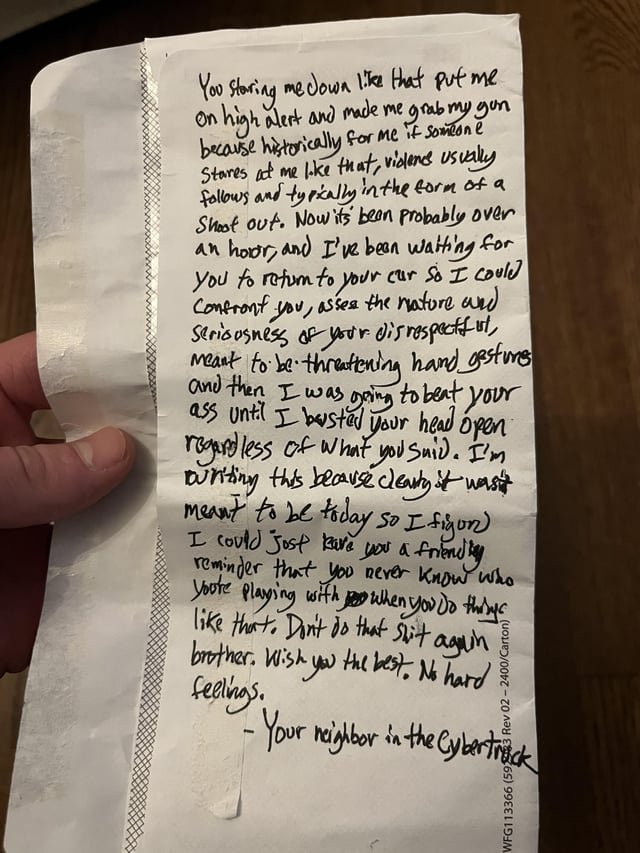 You staring me down like that put me
on high alert and made me grab my gun
because historically for me if someone
stares at me like that, violence usually
follows and typically in the form of a
Shoot out. Now its been probably over
an hour, and I've been waiting for
you to return to your car so I could
Confront you, asses the nature and
seriousness of your disrespectful,
meant to be threatening hand gestures
and then I was going to beat your
ass until I busted your head open
regardless of what you said. I'm
writing this because clearly it wasn't
meant to be today so I figured
I could just leave you a friendly
reminder that you never know who
you're playing with when you do things
like that. Don't do that shit again
brother. Wish you the best. No hard
feelings.
- Your neighbor in the Cybertruck
WFG113366 (59 3 Rev 02 – 2400/Carton)